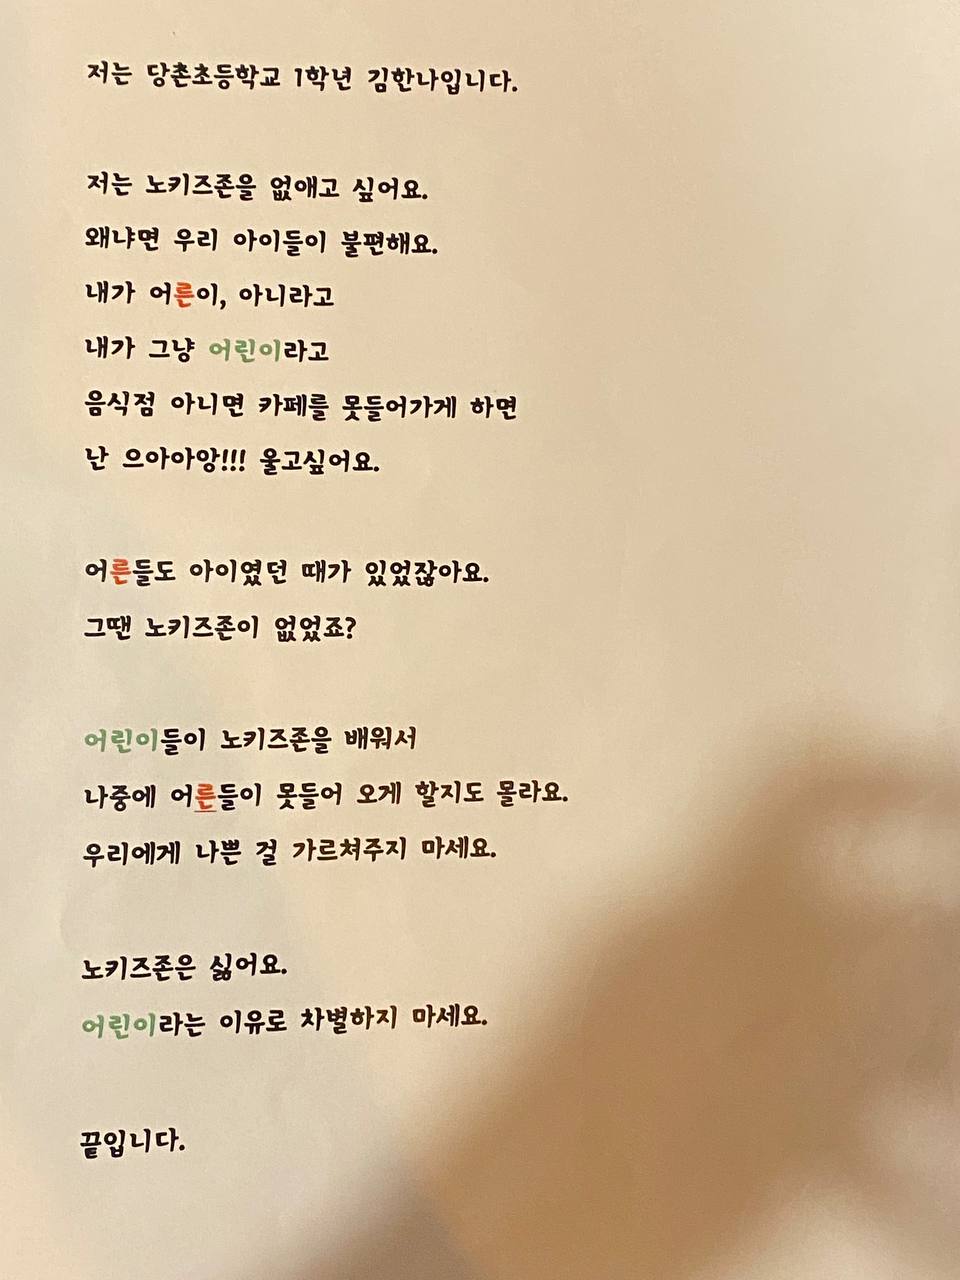 저는 당촌초등학교 1학년 김한나입니다.
저는 노키즈존을 없애고 싶어요.
왜냐면 우리 아이들이 불편해요.
내가 어른이, 아니라고
내가 그냥 어린이라고
음식점 아니면 카페를 못들어가게 하면
난 으아아앙!!! 울고싶어요.
어른들도 아이였던 때가 있었잖아요.
그땐 노키즈존이 없었죠?
어린이들이 노키즈존을 배워서
나중에 어른들이 못들어 오게 할지도 몰라요.
우리에게 나쁜 걸 가르쳐주지 마세요.
노키즈존은 싫어요.
어린이라는 이유로 차별하지 마세요.
끝입니다.